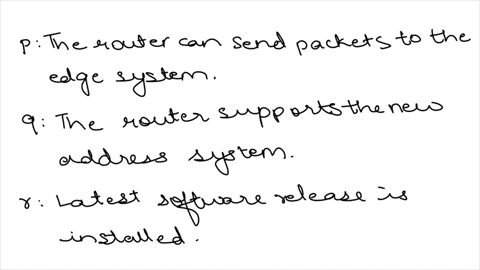 p: The router can send packets to the
edge system.
q: The router supports the new
address system.
r: Latest software release is
installed.